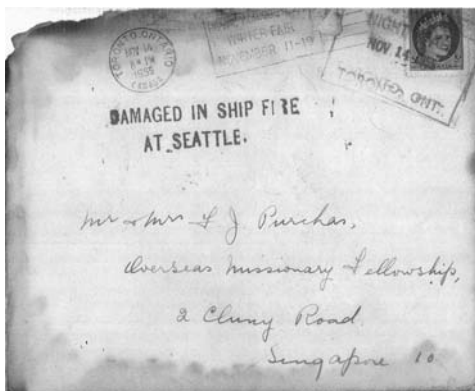 TORONTO, ONTARIO
NOV 14
8 PM
1955
CANADA
WINTER FAIR
NOVEMBER 11-19
NIGHT
NOV 14
TORONTO, ONT.
DAMAGED IN SHIP FIRE
AT SEATTLE.
Mr & Mrs J Purchas,
Overseas Missionary Fellowship,
2 Cluny Road
Singapore 10